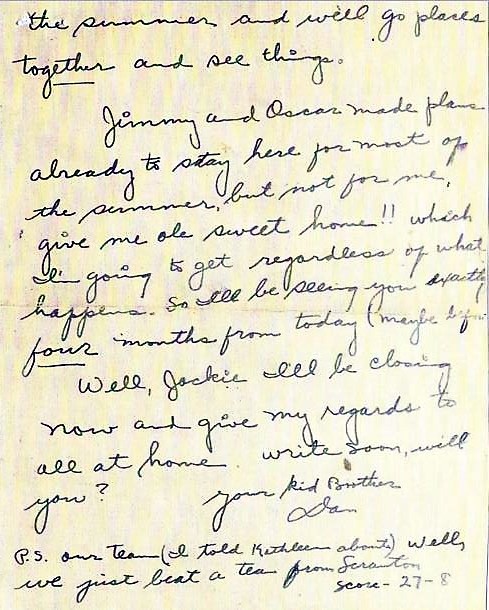 the summer and we'll go places
together and see things.
Jimmy and Oscar made plans
already to stay here for most of
the summer, but not for me,
give me ole sweet home!! which
I'm going to get regardless of what
happens. So I'll be seeing you exactly
four months from today (maybe before
Well, Jackie I'll be closing
now and give my regards to
all at home. write soon, will
you?
your kid Brother
Dan
P.S. our team (I told Kathleen about) Well,
we just beat a tea from Scranton
score - 27 - 8